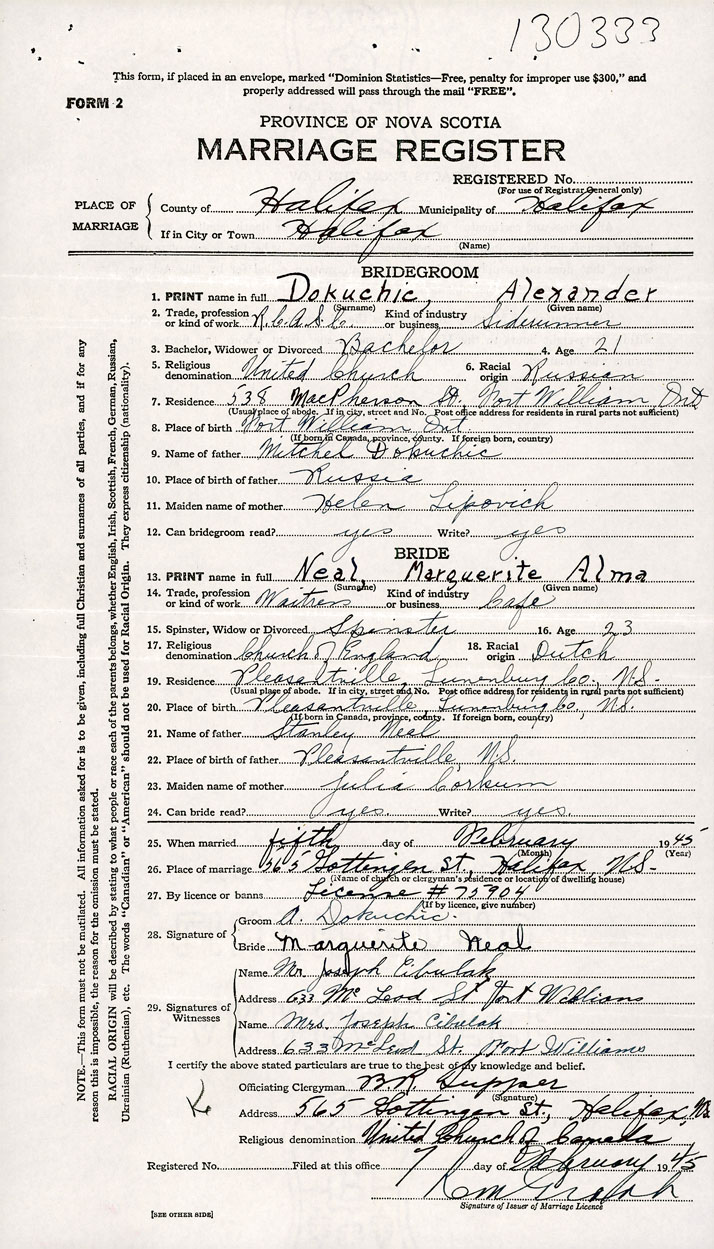 130333
This form, if placed in an envelope, marked "Dominion Statistics—Free, penalty for improper use $300," and
properly addressed will pass through the mail "FREE".
FORM 2
PROVINCE OF NOVA SCOTIA
MARRIAGE REGISTER
REGISTERED No.
(For use of Registrar General only)
PLACE OF MARRIAGE
County of Halifax Municipality of Halifax
If in City or Town Halifax
(Name)
BRIDEGROOM
1. PRINT name in full Dokuchic, Alexander
(Surname) (Given name)
2. Trade, profession or kind of work R.C.A.S.C. Kind of industry or business
3. Bachelor, Widower or Divorced Bachelor 4. Age 21
5. Religious denomination United Church 6. Racial origin Russian
7. Residence 538 MacPherson St. Fort William Ont
(Usual place of abode. If in city, street and No. Post office address for residents in rural parts not sufficient)
8. Place of birth Fort William Ont
(If born in Canada, province, county. If foreign born, country)
9. Name of father Mitchel Dokuchic
10. Place of birth of father Russia
11. Maiden name of mother Helen Lipovich
12. Can bridegroom read? yes Write? yes
BRIDE
13. PRINT name in full Neal, Marguerite Alma
(Surname) (Given name)
14. Trade, profession or kind of work Waitress Kind of industry or business Cafe
15. Spinster, Widow or Divorced Spinster 16. Age 23
17. Religious denomination Church of England 18. Racial origin Dutch
19. Residence Pleasantville, Lunenburg Co., N.S.
(Usual place of abode. If in city, street and No. Post office address for residents in rural parts not sufficient)
20. Place of birth Pleasantville, Lunenburg Co, N.S.
(If born in Canada, province, county. If foreign born, country)
21. Name of father Stanley Neal
22. Place of birth of father Pleasantville N.S.
23. Maiden name of mother Julia Corkum
24. Can bride read? yes. Write? yes.
25. When married fifth day of February 1945
(Month) (Year)
26. Place of marriage 565 Gottingen St, Halifax, N.S.
(Name of church or clergyman's residence or location of dwelling house)
27. By licence or banns License # 75904
(If by licence, give number)
28. Signature of
Groom A. Dokuchic.
Bride Marguerite Neal
29. Signatures of Witnesses
Name Mr. Joseph Cibulak
Address 633 McLeod St Fort Williams
Name Mrs. Joseph Cibulak
Address 633 McLeod St. Fort Williams
I certify the above stated particulars are true to the best of my knowledge and belief.
Officiating Clergyman
(Signature)
Address 565 Gottingen St., Halifax, N.S.
Religious denomination United Church of Canada
Registered No. Filed at this office 7 day of February 1945
Signature of Issuer of Marriage Licence
[SEE OTHER SIDE]
NOTE.—This form must not be mutilated. All information asked for is to be given, including full Christian and surnames of all parties, and if for any
reason this is impossible, the reason for the omission must be stated.
RACIAL ORIGIN will be described by stating to what people or race each of the parents belongs, whether English, Irish, Scottish, French, German, Russian,
Ukrainian (Ruthenian), etc. The words "Canadian" or "American" should not be used for Racial Origin. They express citizenship (nationality).